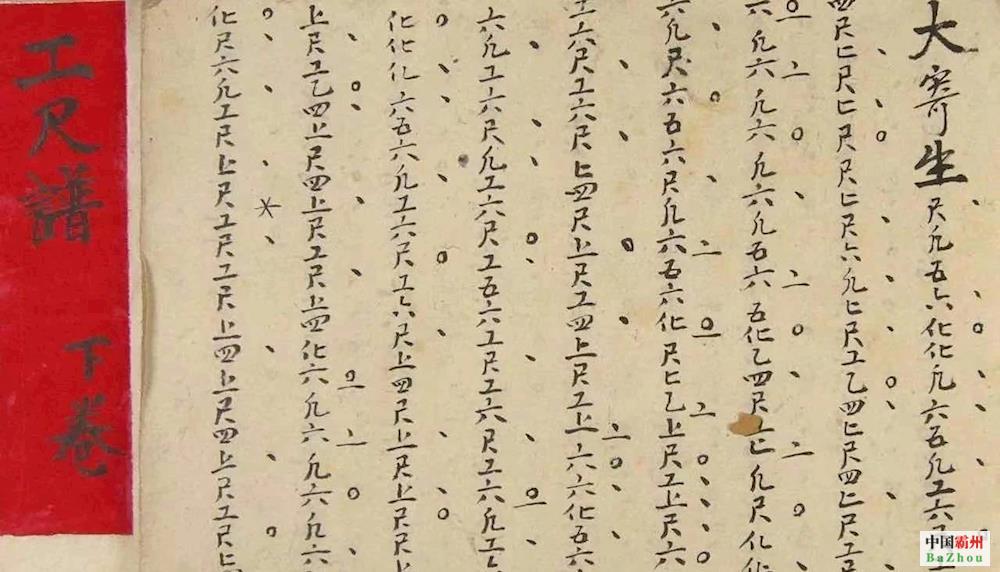 大寄生尺凡五六化化凡六五凡工六尺
四尺上尺上尺尺上尺六凡上尺工乙四上尺四上尺工尺
六凡六凡六凡六凡五六五化乙四尺上凡尺化化
六凡尺六五六尺凡六五六化尺上乙上尺工上尺六
工六尺工六尺上四尺上尺工四上尺工上六六化五六
六凡工六尺凡工六尺工五六工尺工六尺工六凡工
化化化六五六凡工六尺工六尺上四尺上尺上尺尺
上尺工乙四上尺四上尺工尺上四化六凡六凡六凡六
化尺六凡工尺上尺工尺工尺上四上尺四上尺工尺上
工尺譜 下卷
中国霸州
BaZhou